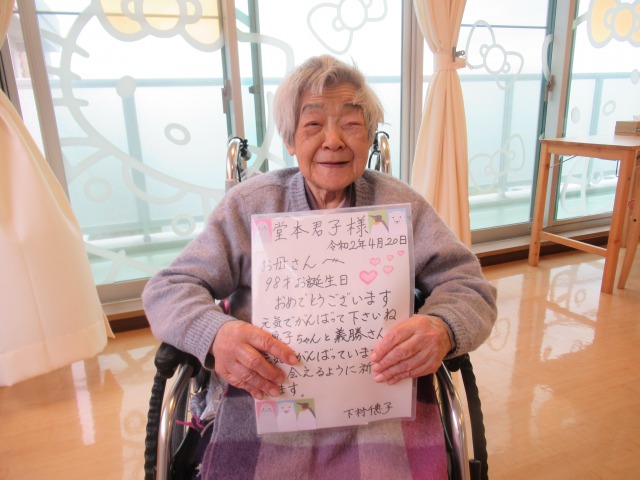 堂本君子様
令和2年4月20日
お母さん
98才お誕生日
おめでとうございます
元気でがんばって下さいね
子ちゃんと義勝さん
がんばっていま
会えるように祈
ます。
下村
子